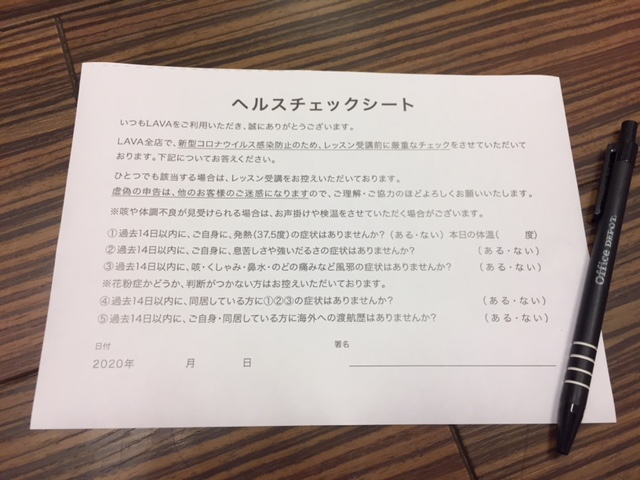 ヘルスチェックシート
いつもLAVAをご利用いただき、誠にありがとうございます。
LAVA全店で、新型コロナウイルス感染防止のため、レッスン受講前に厳重なチェックをさせていただいて
おります。下記についてお答えください。
ひとつでも該当する場合は、レッスン受講をお控えいただいております。
虚偽の申告は、他のお客様のご迷惑になりますので、ご理解・ご協力のほどよろしくお願いいたします。
※咳や体調不良が見受けられる場合は、お声掛けや検温をさせていただく場合がございます。
①過去14日以内に、ご自身に、発熱(37.5度)の症状はありませんか?(ある・ない) 本日の体温( 度)
②過去14日以内に、ご自身に、息苦しさや強いだるさの症状はありませんか? (ある・ない)
③過去14日以内に、咳・くしゃみ・鼻水・のどの痛みなど風邪の症状はありませんか? (ある・ない)
※花粉症かどうか、判断がつかない方はお控えいただいております。
④過去14日以内に、同居している方に①②③の症状はありませんか? (ある・ない)
⑤過去14日以内に、ご自身・同居している方に海外への渡航歴はありませんか? (ある・ない)
日付 署名
2020年 月 日
Office DEPOT